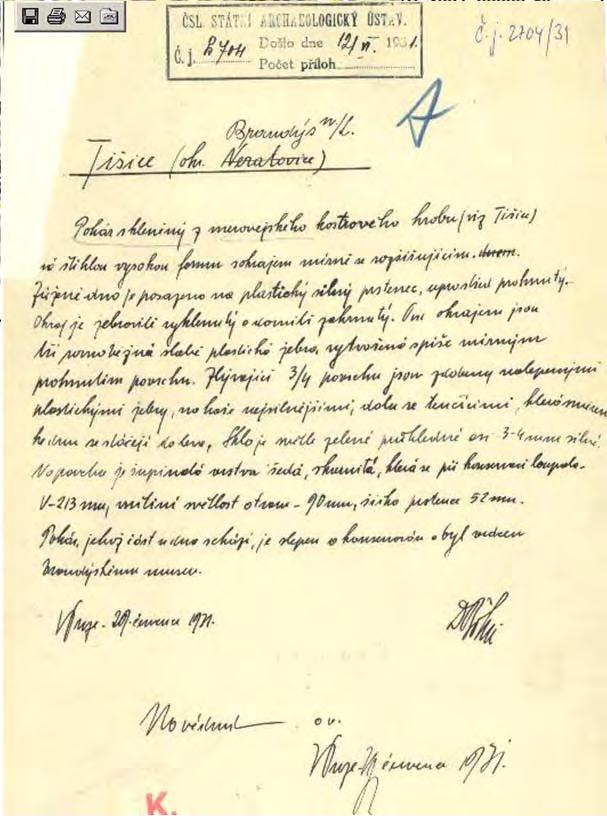 ČSL. STÁTNÍ ARCHAEOLOGICKÝ ÚSTAV.
Č. j. 2704 Došlo dne 12/VI. 1931.
Počet příloh
Č. j. 2704/31
A
Brandýs n/L.
Tišice (okr. Neratovice)
Pohár skleněný z merovejského kostrového hrobu (viz Tišice)
má štíhlou vysokou formu s okrajem mírně se rozšiřujícím. dnem.
Zúžené dno je posazeno na plastický silný prstenec, uprostřed prohnutý.
Okraj je vyklenutý zahnutý. Pod okrajem jsou
tři rovnoběžná slabě plastická žebra, vytvořená spíše mírným
prohnutím povrchu. Zbývající 3/4 povrchu jsou zdobeny nalepenými
plastickými žebry, nahoře nejsilnějšími, dolů se tenčícími, která směrem
ke dnu se stáčejí doleva. Sklo je světle zelené průhledné asi 3-4 mm silné.
Na povrchu je šupinatá vrstva šedá, která se při konservaci loupala.
V-213 mm, vnitřní světlost otvoru - 90 mm, šířka prstence 52 mm.
Pohár, jehož část u dna schází, je slepen a konservován a byl vrácen
Brandýskému museu.
V Praze - 29. června 1931.
V Praze června 1931.
K.